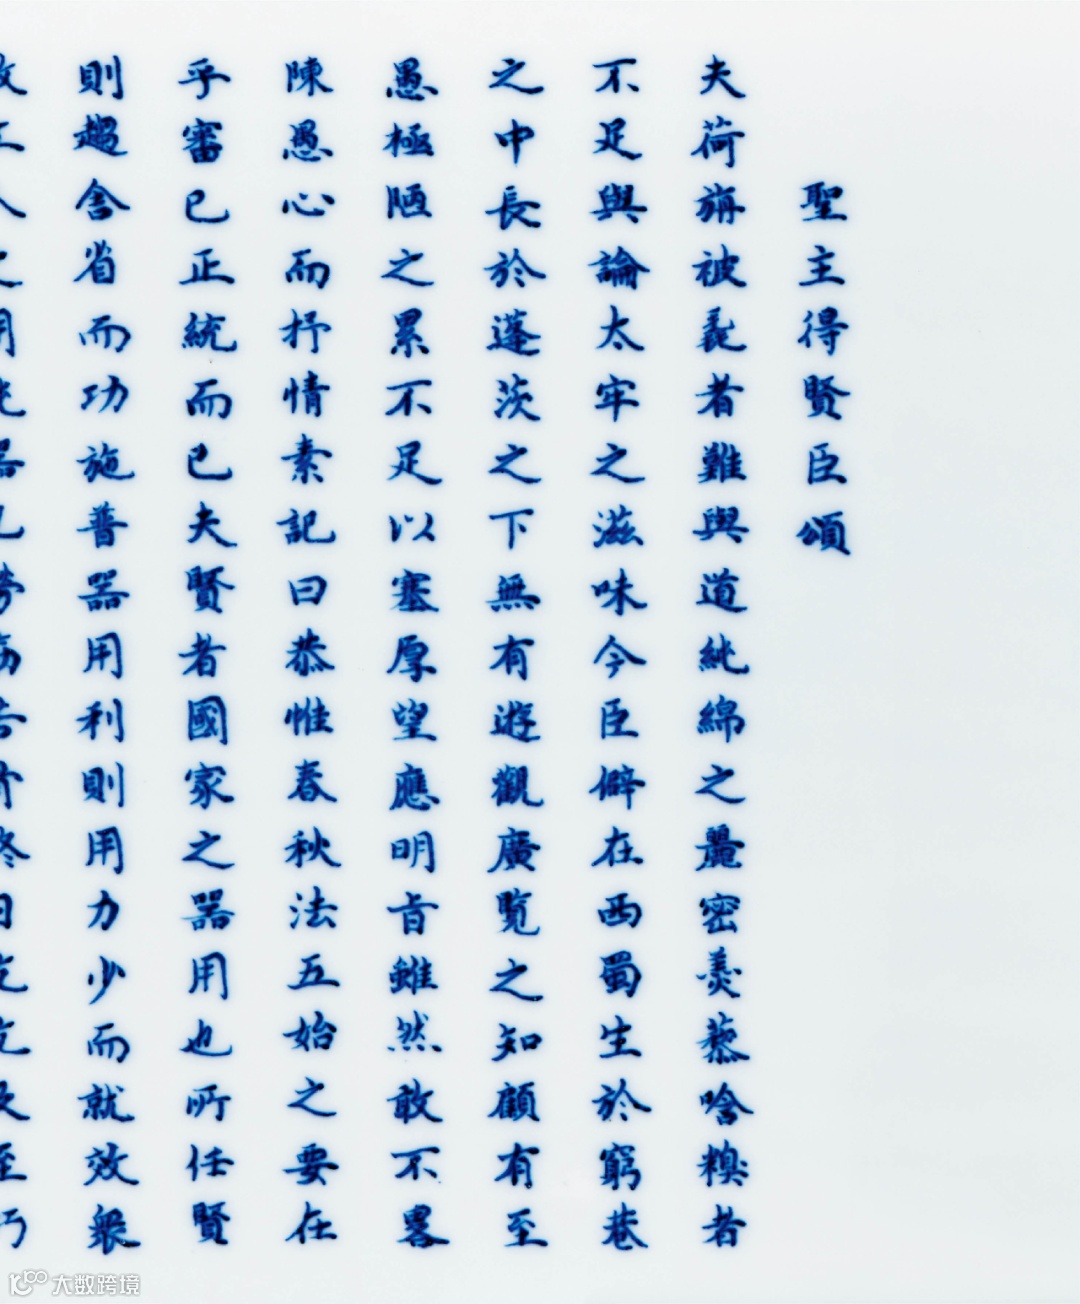 聖主得賢臣頌
夫荷旃被毳者難與道純綿之麗密羹藜唅糗者
不足與論太牢之滋味今臣僻在西蜀生於窮巷
之中長於蓬茨之下無有遊觀廣覧之知顧有至
愚極陋之累不足以塞厚望應明旨雖然敢不畧
陳愚心而抒情素記曰恭惟春秋法五始之要在
乎審已正統而已夫賢者國家之器用也所任賢
則趨舍省而功施普器用利則用力少而就效衆
大数跨境